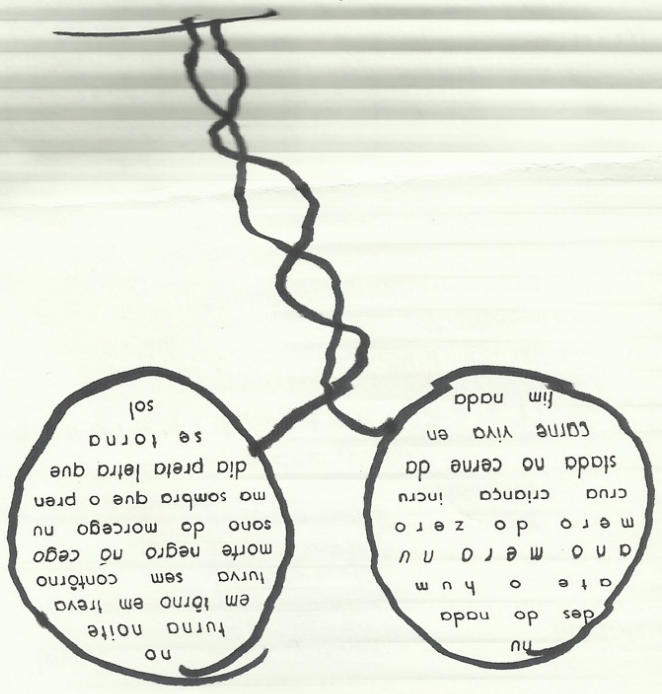 nu
des do nada
a t e o h u m
a n o m e r o n u
m e r o d o z e r o
crua criança incru
stada no cerne da
carne viva en
fim nada
no
turna noite
em tôrno em treva
turva sem contôrno
morte negro nó cego
sono do morcego nu
ma sombra que o pren
dia preta letra que
se torna
sol